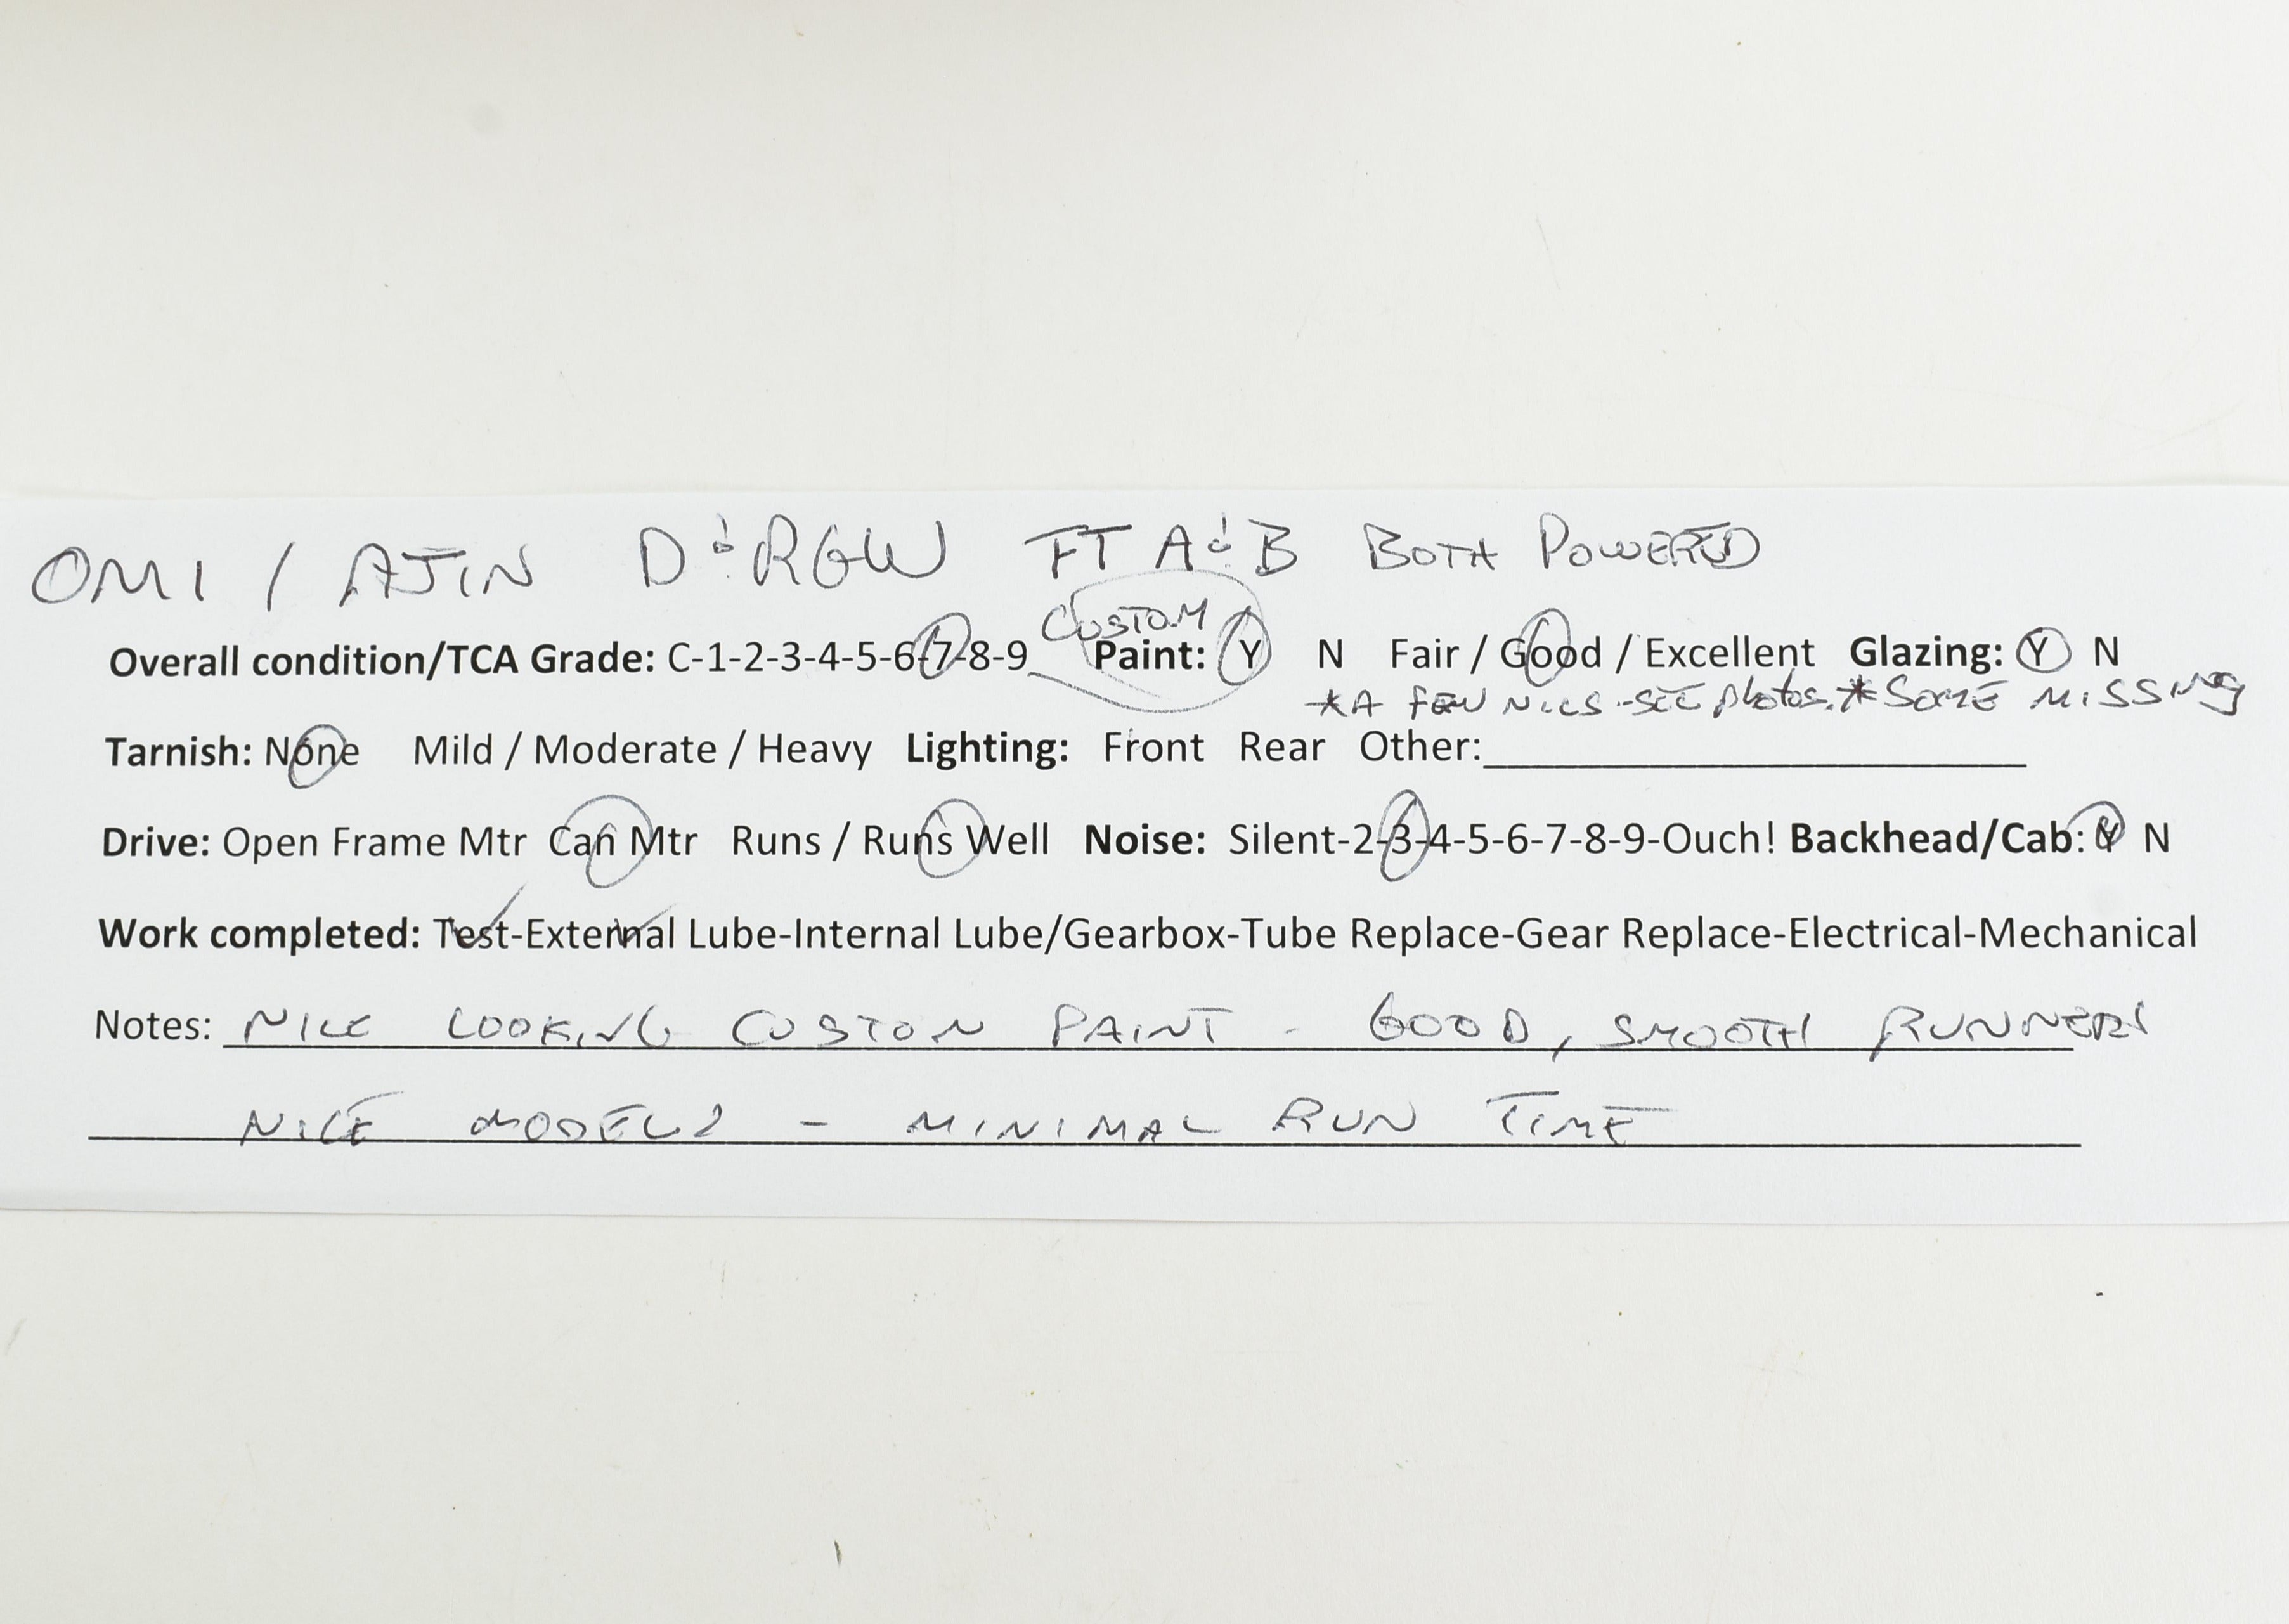 OMI / AJIN D&RGW FT A&B BOTH POWERED
CUSTOM
Overall condition/TCA Grade: C-1-2-3-4-5-6-7-8-9 Paint: Y N Fair / Good / Excellent Glazing: Y N
*A FEW NICS - SEE photos. *SOME MISSING
Tarnish: None Mild / Moderate / Heavy Lighting: Front Rear Other:
Drive: Open Frame Mtr Can Mtr Runs / Runs Well Noise: Silent-2-3-4-5-6-7-8-9-Ouch! Backhead/Cab: Y N
Work completed: Test-External Lube-Internal Lube/Gearbox-Tube Replace-Gear Replace-Electrical-Mechanical
Notes: NICE LOOKING CUSTOM PAINT - GOOD, SMOOTH RUNNERS
NICE MODELS - MINIMAL RUN TIME